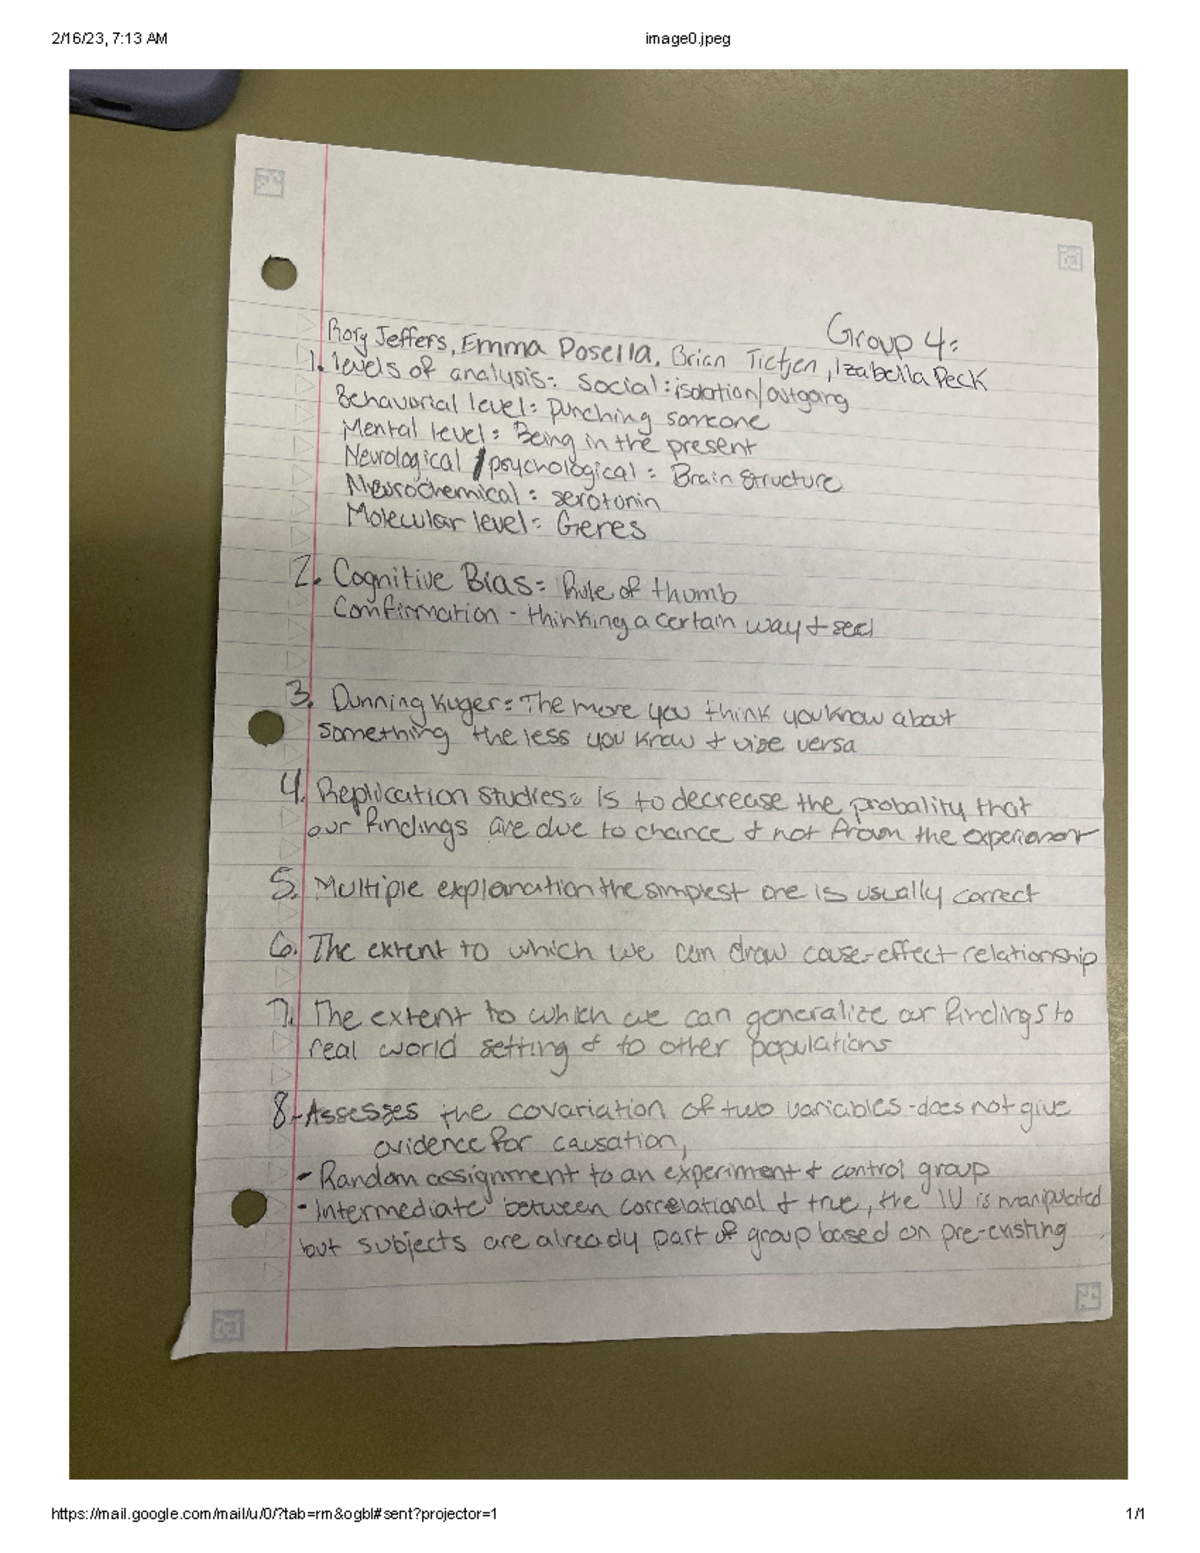 2/16/23, 7:13 AM
image0.jpeg
Group 4:
Rory Jeffers, Emma Posella, Brian Tietjen, Izabella Peck
1. levels of analysis: Social: isolation/outgoing
Behavorial level: Punching someone
Mental level: Being in the present
Neurological / psychological: Brain Structure
Neurochemical: serotonin
Molecular level: Genes
2. Cognitive Bias: Rule of thumb
Confirmation - thinking a certain way +
3. Dunning Kuger: The more you think you know about
something the less you know + vise versa
4. Replication studies: is to decrease the probality that
our findings are due to chance + not from the
5. Multiple explanation the simplest one is usually correct
6. The extent to which we can draw cause-effect relationship
7. The extent to which we can generalize our findings to
real world setting & to other populations
8-Assesses the covariation of two variables-does not give
evidence for causation,
- Random assignment to an experiment + control group
- Intermediate between correlational + true, the IV is manipulated
but subjects are already part of group based on pre-existing
https://mail.google.com/mail/u/0/?tab=rm&ogbl#sent?projector=1
1/1